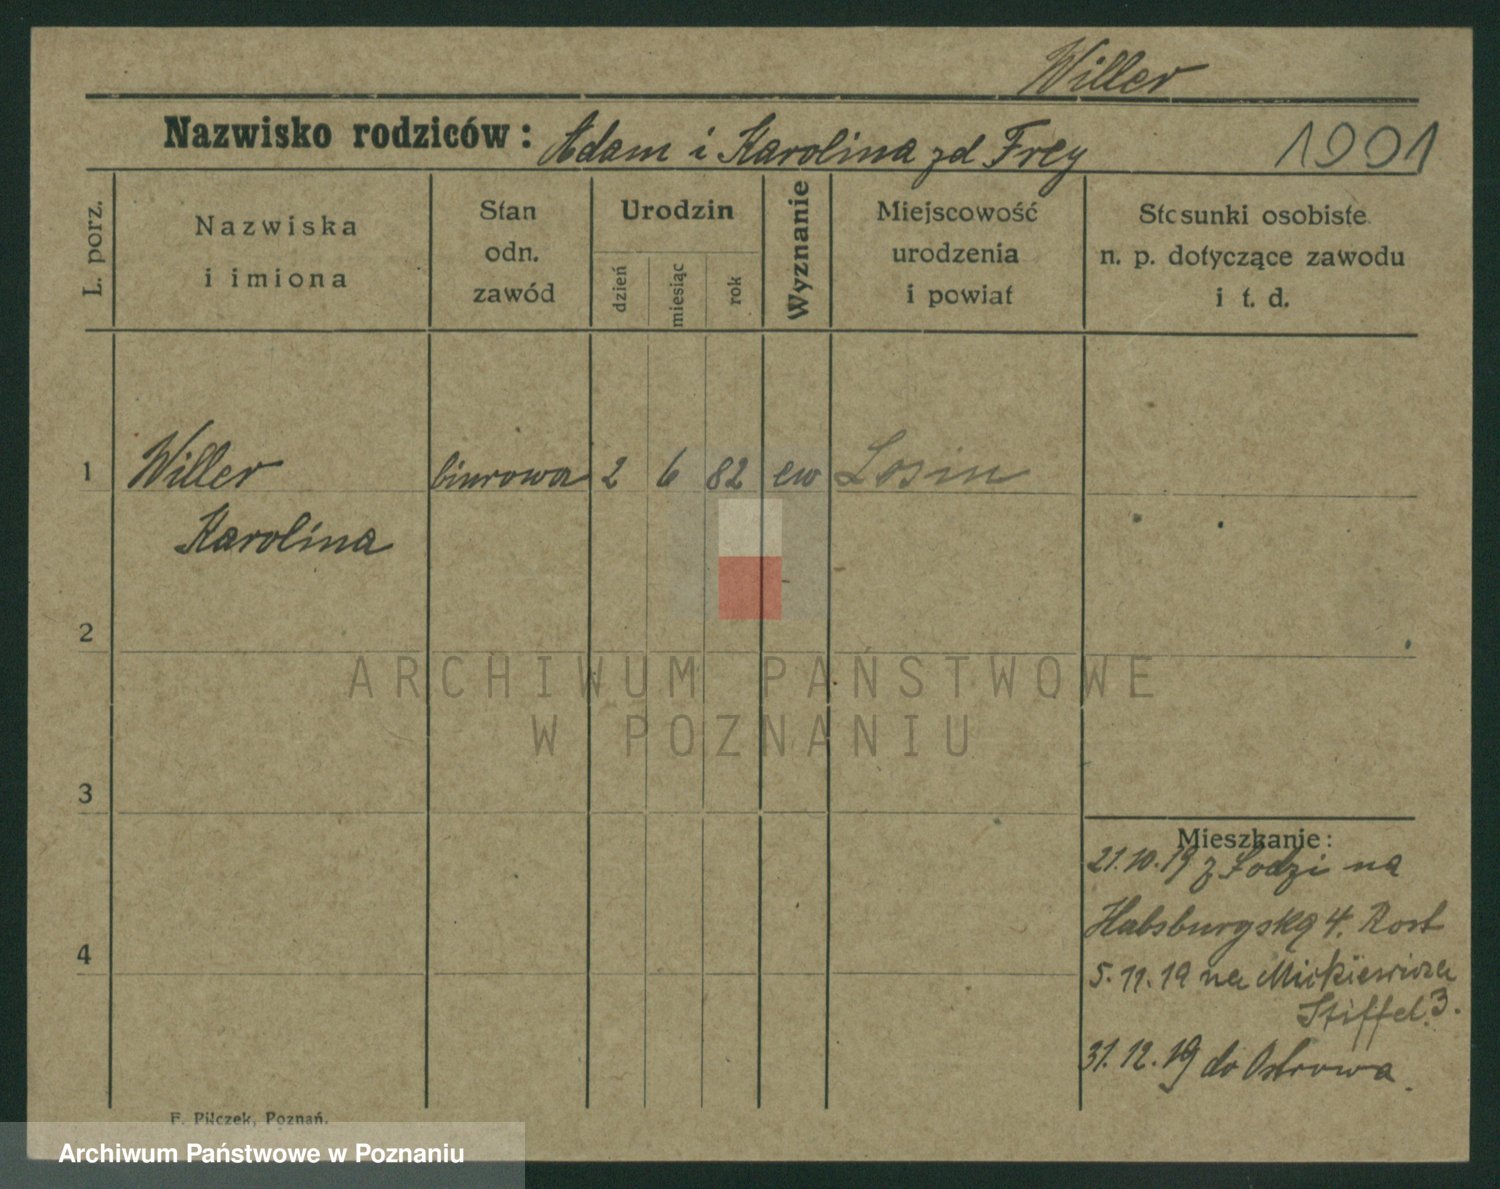 Willer
Nazwisko rodziców: Adam i Karolina zd Frey 1991
L. porz.
Nazwiska
i imiona
Stan
odn.
zawód
Urodzin
dzień
miesiąc
rok
Wyznanie
Miejscowość
urodzenia
i powiat
Stosunki osobiste
n. p. dotyczące zawodu
i t. d.
1 Willer biurowa 2 6 82 ew Losin
Karolina
2
ARCHIWUM PAŃSTWOWE
W POZNANIU
3
Mieszkanie:
21.10.19 z Łodzi na
Habsburgską 4. Rost
4
5.11.19 na Mickiewicza
3. Stiffel.
31.12.19 do Ostrowa.
F. Pilczek, Poznań.
Archiwum Państwowe w Poznaniu